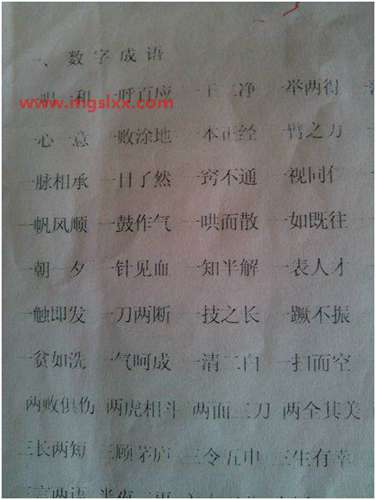 一、数字成语
一唱一和 一呼百应 一干二净 一举两得
www.mgslxx.com
一心一意 一败涂地 一本正经 一臂之力
一脉相承 一目了然 一窍不通 一视同仁
一帆风顺 一鼓作气 一哄而散 一如既往
一朝一夕 一针见血 一知半解 一表人才
一触即发 一刀两断 一技之长 一蹶不振
一贫如洗 一气呵成 一清二白 一扫而空
两败俱伤 两虎相斗 两面三刀 两全其美
三长两短 三顾茅庐 三令五申 三生有幸
三言两语